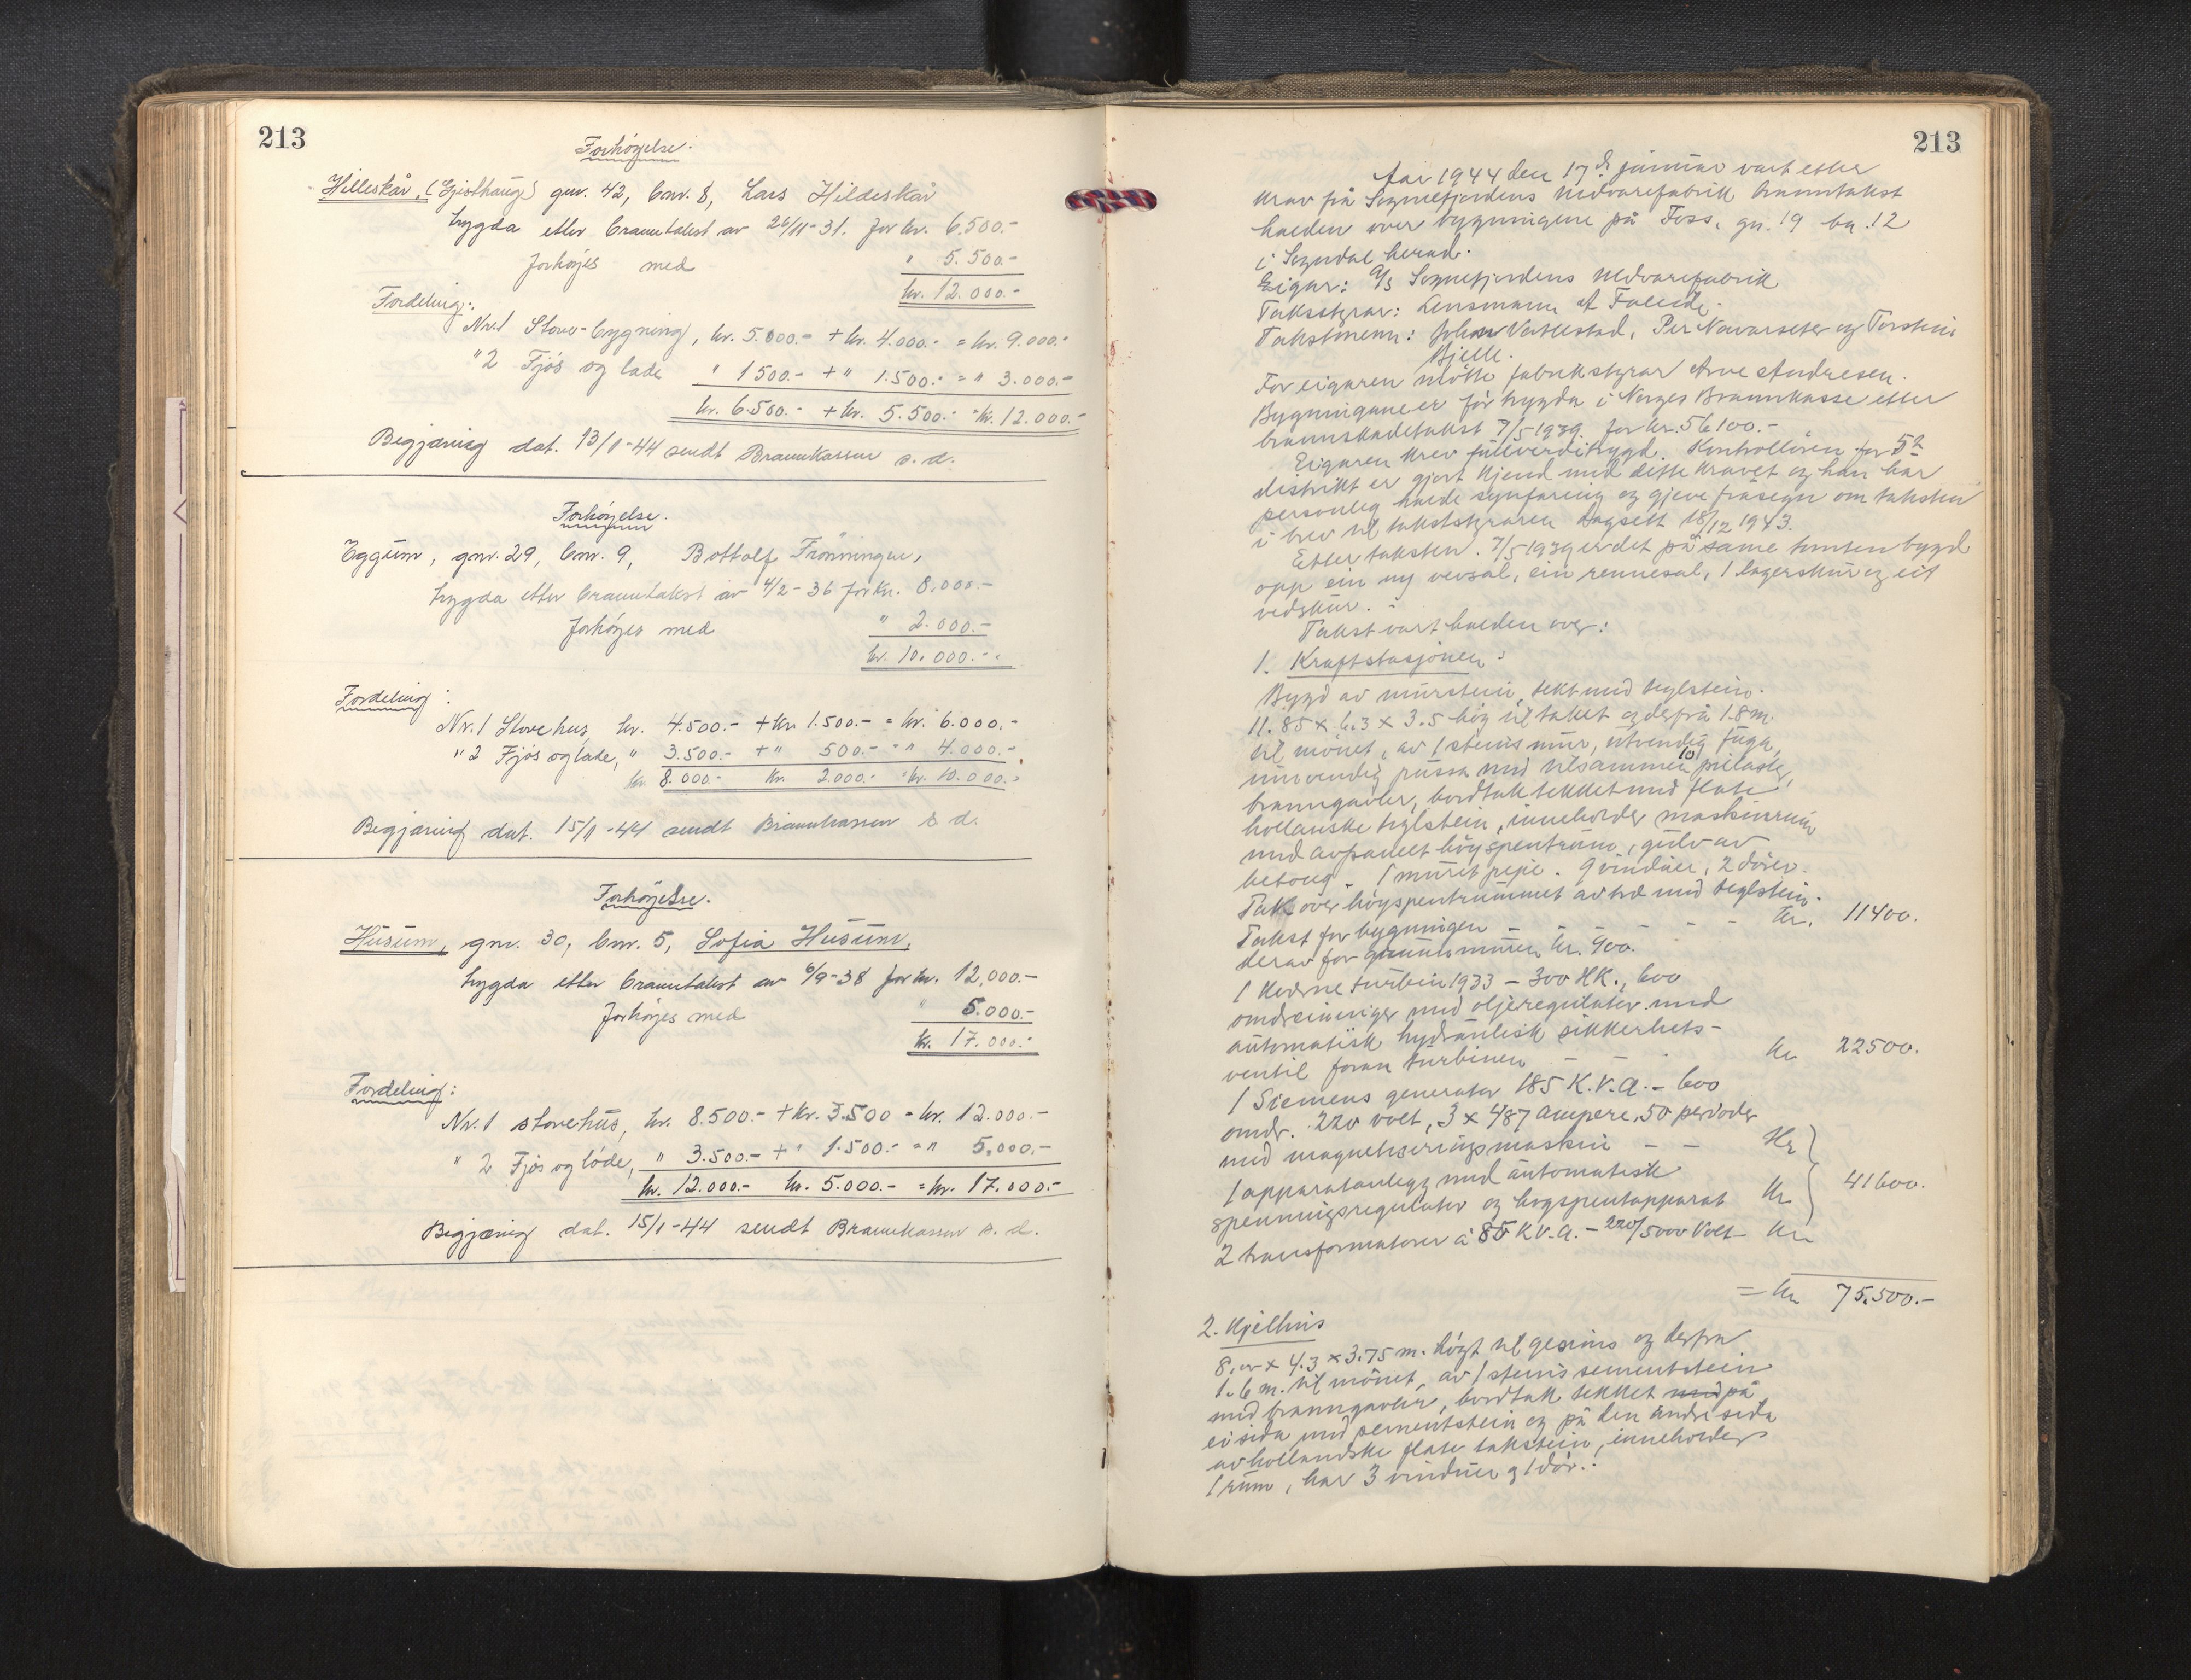 213
Forhøyelse:
Hilleskår, (Gjesthaug) gnr. 42, bnr. 8, Lars Hildeskår
trygda etter branntakst av 26/11-31. for kr. 6.500.-
forhøyes med " 5.500.-
kr. 12.000.-
Fordeling:
Nr. 1 Stove-bygning, kr. 5.000.- + kr. 4.000.- = kr. 9.000.-
" 2 Fjøs og lade " 1500.- + " 1.500.- = " 3.000.-
kr. 6.500.- + kr. 5.500.- = kr. 12.000.-
Begjæring dat. 13/1-44 sendt Brannkassen s. d.
Forhøyelse.
Eggum, gnr. 29, bnr. 9, Bottolf Frønningen,
trygda etter branntakst av 4/2-36 for kr. 8.000.-
forhøyes med " 2.000.-
kr. 10.000.-
Fordeling:
Nr. 1 Stovehus, kr. 4.500.- + kr. 1.500.- = kr. 6.000.-
" 2 Fjøs og lade, " 3.500.- + " 500.- = " 4.000.-
kr. 8.000.- kr. 2.000.- = kr. 10.000.-
Begjæring dat. 15/1-44 sendt Brannkassen s. d.
Forhøyelse.
Husum, gnr. 30, bnr. 5, Sofia Husum,
trygda etter branntakst av 6/9-38 for kr. 12,000.-
forhøyes med " 5.000.-
kr. 17.000.-
Fordeling:
Nr. 1 stovehus, kr. 8.500.- + kr. 3.500 = kr. 12.000.-
" 2 Fjøs og løde, " 3.500.- + " 1.500.- = " 5,000.-
kr. 12.000.- kr. 5.000.- = kr. 17.000.-
Begjæring dat. 15/1-44 sendt Brannkassen s. d.
213
Aar 1944 den 17de januar vart etter
krav frå Sognefjordens Uldvarefabrik branntakst
halden over bygningene på Foss, gn. 19 bn. 12
i Sogndal herad.
Eigar: A/S Sognefjordens Uldvarefabrik
Takststyrar: Lensmann A Falede.
Takstmenn: Johan Vatlestad, Per Navarsete og Torstein
Bjelle.
For eigaren møtte fabrikstyrar Arne Andresen.
Bygningane er før trygda i Norges Brannkasse etter
brannskadetakst 7/5 1939 for kr. 56100.-
Eigaren krev fullverditrygd. Kontrolløren for 5te
distrikt er gjort kjend med dette kravet og han har
personleg halde synfaring og gjeve fråsegn om taksten
i brev til takststyraren dagsett 18/12 1943.
Etter taksten 7/5 1939 er det på same tomten bygd
opp ein ny vevsal, ein rennesal, 1 lagerskur og eit
vedskur.
Takst vart halden over:
1. Kraftstasjonen:
Bygd av murstein, tekt med teglstein.
11.85 x 6.3 x 3.5 høg til taket og derfrå 1.8 m.
til mønet, av 1 steins mur, utvendig fuga,
innvendig pussa med tilsammen 10 pilastre,
branngavler, bordtak tekket med flate
hollanske teglstein, inneholder maskinrum
med avpanelt høyspentrum, gulv av
betong. 1 muret pipe. 9 vinduer, 2 dører.
Tak over høyspentrummet av tre med teglstein.
Takst for bygningen - - - - - kr. 11400.
derav for grunnmuren kr. 900.
1 Kverne turbin 1933 - 300 HK., 600
omdreininger med oljeregulator med
automatisk hydraulisk sikkerhets-
ventil foran turbinen - - - kr 22500.
1 Siemens generator 185 K.V.A. - 600
omdr. 220 volt, 3 x 487 ampere, 50 perioder
med magnetiseringsmaskin - - Kr
1 apparatanlegg med automatisk
spenningsregulator og høgspentapparat kr 41600.
2 transformatorer à 85 K.V.A. - 220/5000 Volt - kr
= kr 75.500.-
2. Kjelhus
8.00 x 4.3 x 3.75 m. høgt til gesims og derfra
1.6 m. til mønet, av 1 steins sementstein
med branngavler, bordtak tekket med på
ei sida med sementstein og på den andre sida
av hollandske flate takstein, inneholder
1 rum, har 3 vinduer og 1 dør.